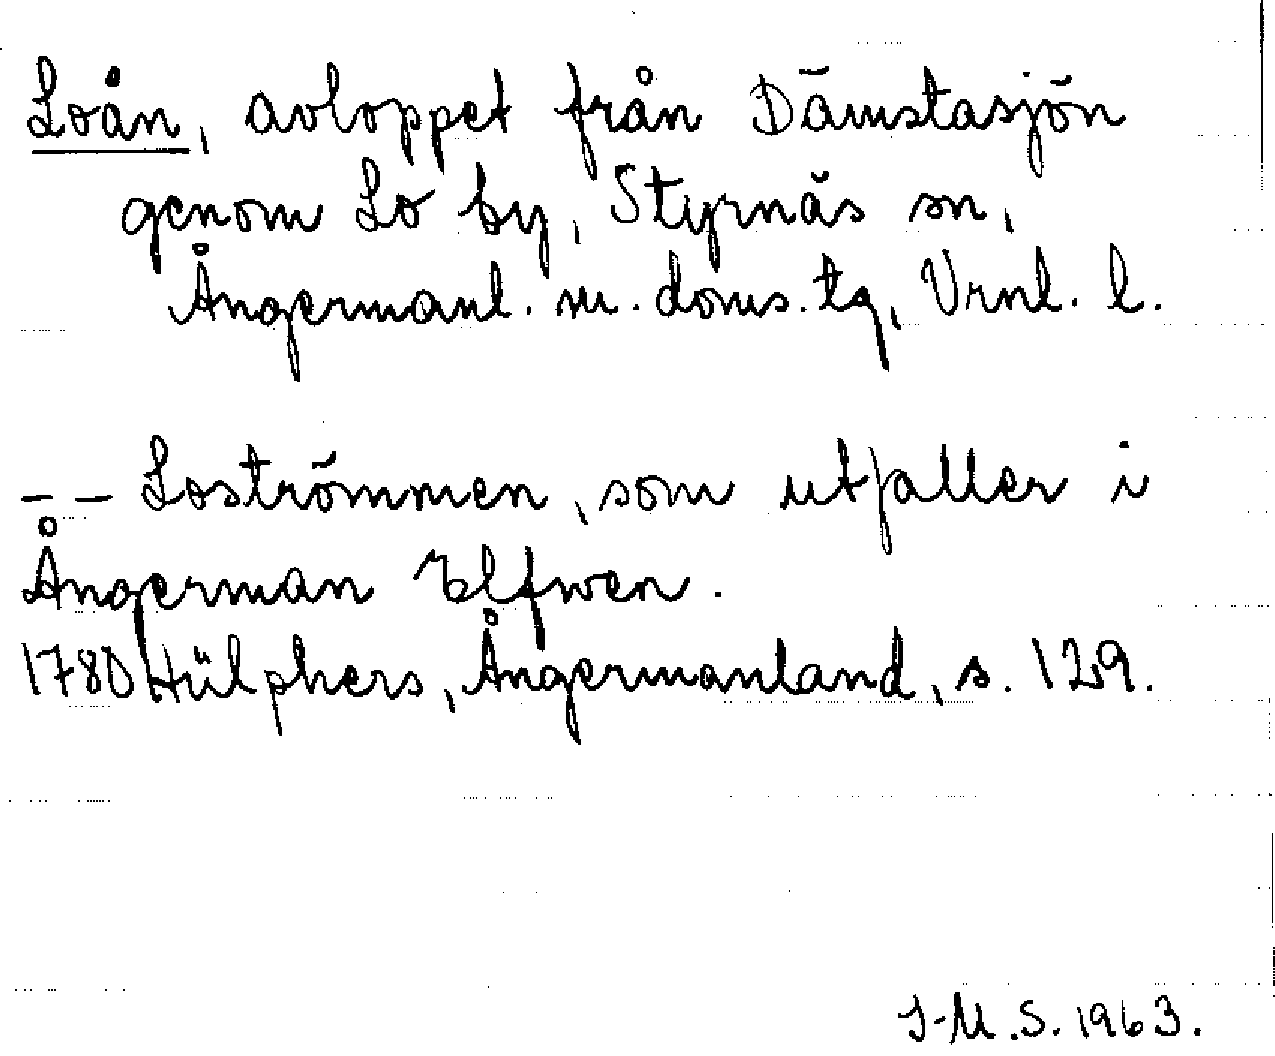 Loån, avloppet från Dämstasjön
genom Lo by, Styrnäs sn,
Ångermanl. m. doms. tg, Vrnl. l.
– – Loströmmen, som utfaller i
Ångerman Elfwen.
1780 Hülphers, Ångermanland, s. 129.
J-M.S. 1963.